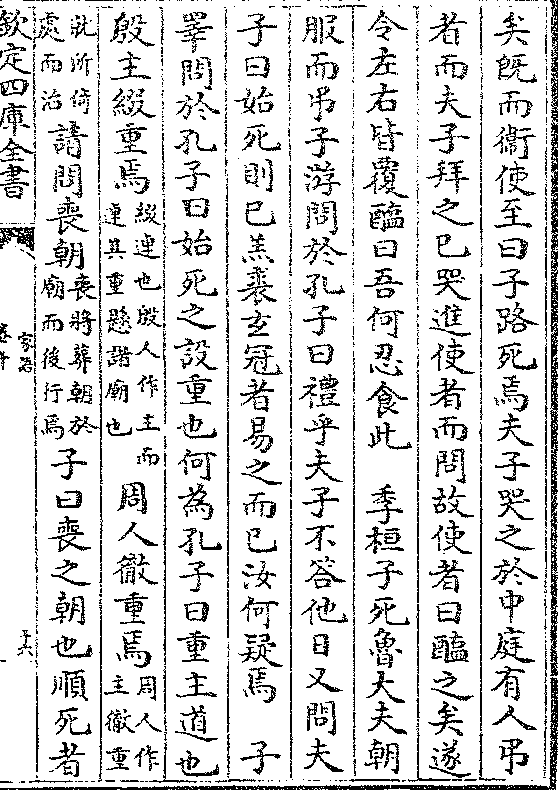 矣既而衞使至曰子路死焉夫子哭之於中庭有人弔
者而夫子拜之已哭進使者而問故使者曰醢之矣遂
令左右皆覆醢曰吾何忍食此　季桓子死魯大夫朝
服而弔子游問於孔子曰禮乎夫子不答他日又問夫
子曰始死則已羔裘玄冠者易之而已汝何疑焉　子
罕問於孔子曰始死之設重也何為孔子曰重主道也
殷主綴重焉綴連也殷人作主而連其重懸諸廟也周人徹重焉周人作主徹重
就所倚處而治請問喪朝喪將葬朝於廟而後行焉子曰喪之朝也順死者
欽定四庫全書
家語
卷十